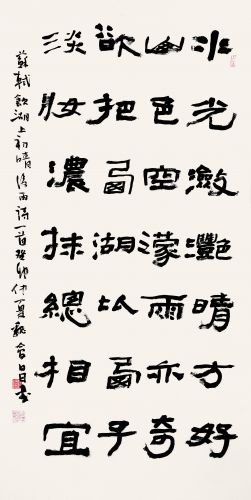 水光瀲灩晴方好
山色空濛雨亦奇
欲把西湖比西子
淡妝濃抹總相宜
蘇軾飲湖上初晴後雨詩一首癸卯仲夏書